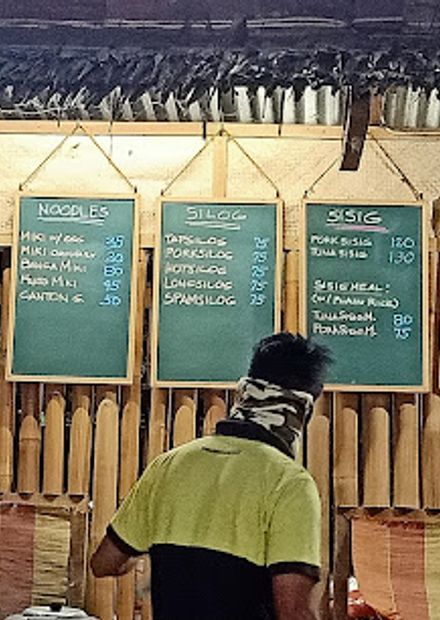 NOODLES
MIKI W/ EGG 35
MIKI ORDINARY 30
BAHCA MIKI 80
MIKI 45
CANTON G. 50
SILOG
TAPSILOG 75
PORKSILOG 75
HOTSILOG 75
LONGSILOG 75
SPAMSILOG 75
SISIG
PORK SISIG 120
TUNA SISIG 130
SISIG MEAL:
(W/ PLAIN RICE)
TUNA SISIG M. 80
PORK SISIG M. 75